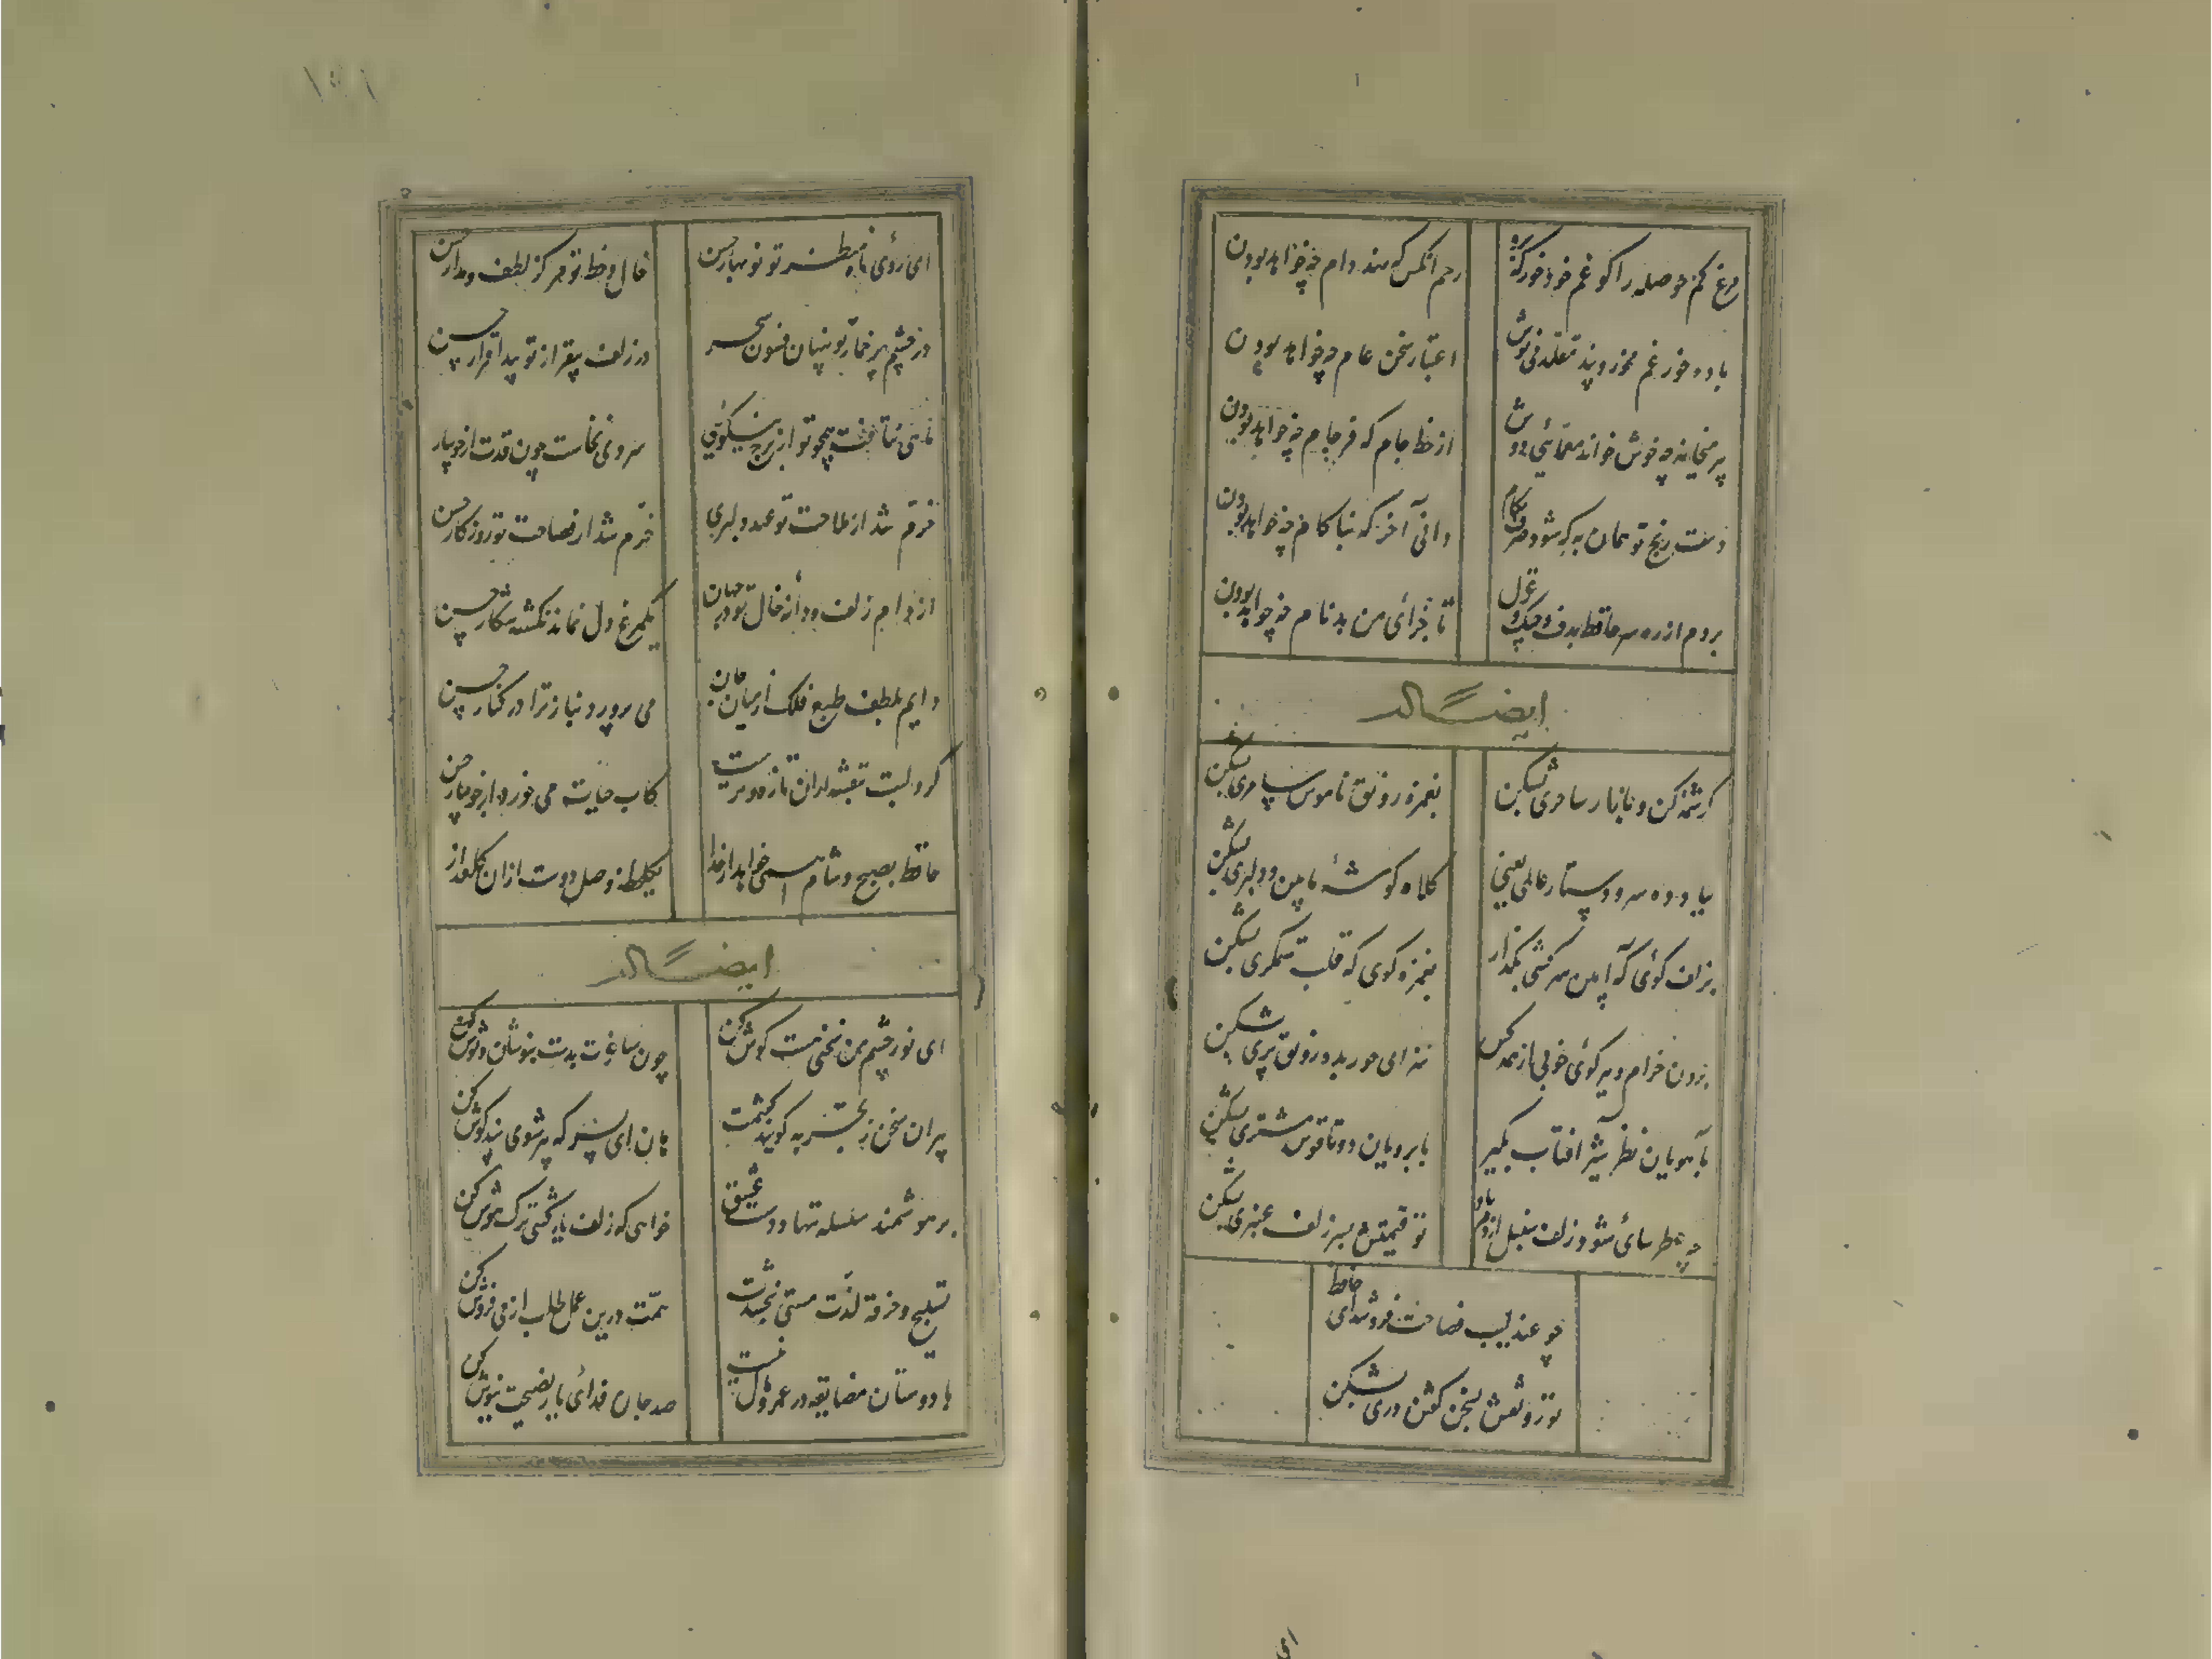 مرغ کم حوصله را گو غم خود خور که برو
رحم آنکس که نهد دام چه خواهد بودن
باده خور غم مخور و پند مقلد منیوش
اعتبار سخن عام چه خواهد بودن
پیر میخانه چه خوش خواند معمائی دوش
از خط جام که فرجام چه خواهد بودن
دست رنج تو همان به که شود صرف بکام
دانی آخر که بناکام چه خواهد بودن
بردم از ره سر حافظ بدف و چنگ و غزل
تا جزای من بدنام چه خواهد بودن
ایضاً له
کرشمه کن و بازار ساحری بشکن
بغمزه رونق ناموس سامری بشکن
بباد ده سر و دستار عالمی یعنی
کلاه گوشه بآیین دلبری بشکن
بزلف گوی که آیین سرکشی بگذار
بغمزه گوی که قلب ستمگری بشکن
برون خرام و ببر گوی خوبی از همه کس
سزای حور بده رونق پری بشکن
بآهوان نظر شیر آفتاب بگیر
بابروان دوتا قوس مشتری بشکن
چو عطرسای شود زلف سنبل از دم باد
تو قیمتش بسر زلف عنبری بشکن
چو عندلیب فصاحت فروشد ای حافظ
تو رونقش بسخن گفتن دری بشکن
۱۵۱
ای روی ماه منظر تو نوبهار حسن
خال و خط تو مرکز لطف و مدار حسن
در چشم پرخمار تو پنهان فسون سحر
در زلف بیقرار تو پیدا قرار حسن
ماهی نتافت همچو تو از برج نیکوئی
سروی نخاست چون قدت از جویبار
خرم شد از ملاحت تو عهد دلبری
خرم شد از فصاحت تو روزگار حسن
از دام زلف و دانه خال تو در جهان
یکمرغ دل نماند نگشته شکار حسن
دایم بلطف طبع فلک از میان جان
می پرورد بناز ترا در کنار حسن
گرد لبت بنفشه ازان تازه و ترست
کاب حیات می خورد از جویبار حسن
حافظ بصبح و شام همی خواهد از خدا
یکلحظه وصل دوست ازان گلعذار
ایضاً له
ای نور چشم من سخنی هست گوش کن
چون ساغرت پرست بنوشان و نوش کن
پیران سخن ز تجربه گویند گفتمت
هان ای پسر که پیر شوی پند گوش کن
بر هوشمند سلسله ننهاد دست عشق
خواهی که زلف یار کشی ترک هوش کن
تسبیح و خرقه لذت مستی نبخشدت
همت درین عمل طلب از می فروش کن
با دوستان مضایقه در عمر و مال نیست
صد جان فدای یار نصیحت نیوش کن